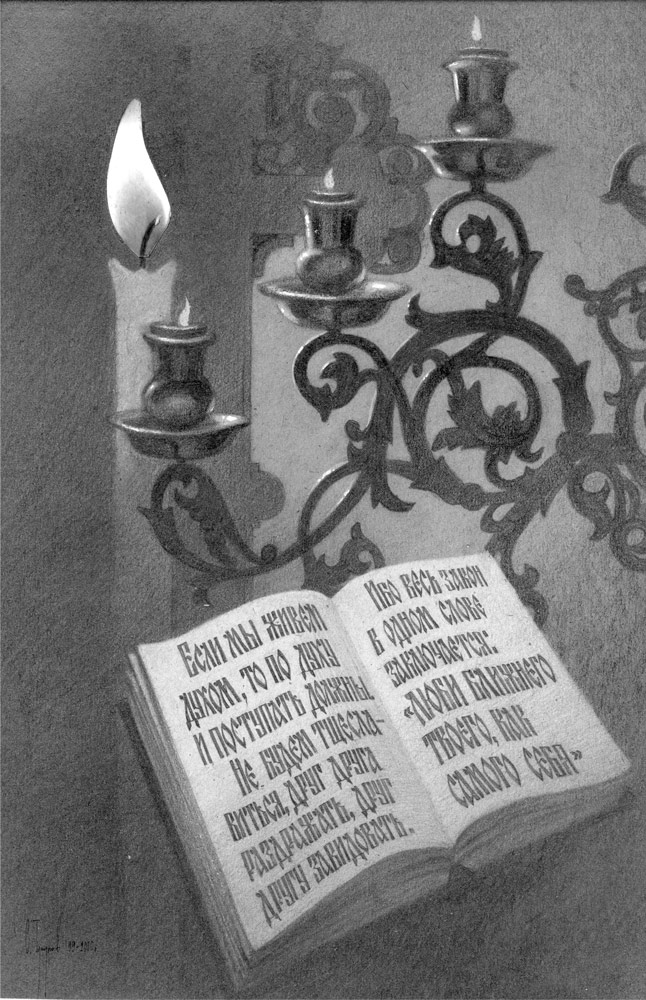 Если мы живем
духом, то по духу
и поступать должны.
Не будем тщесла-
виться, друг друга
раздражать, друг
другу завидовать.
Ибо весь закон
в одном слове
заключается:
«Люби ближнего
твоего, как
самого себя»